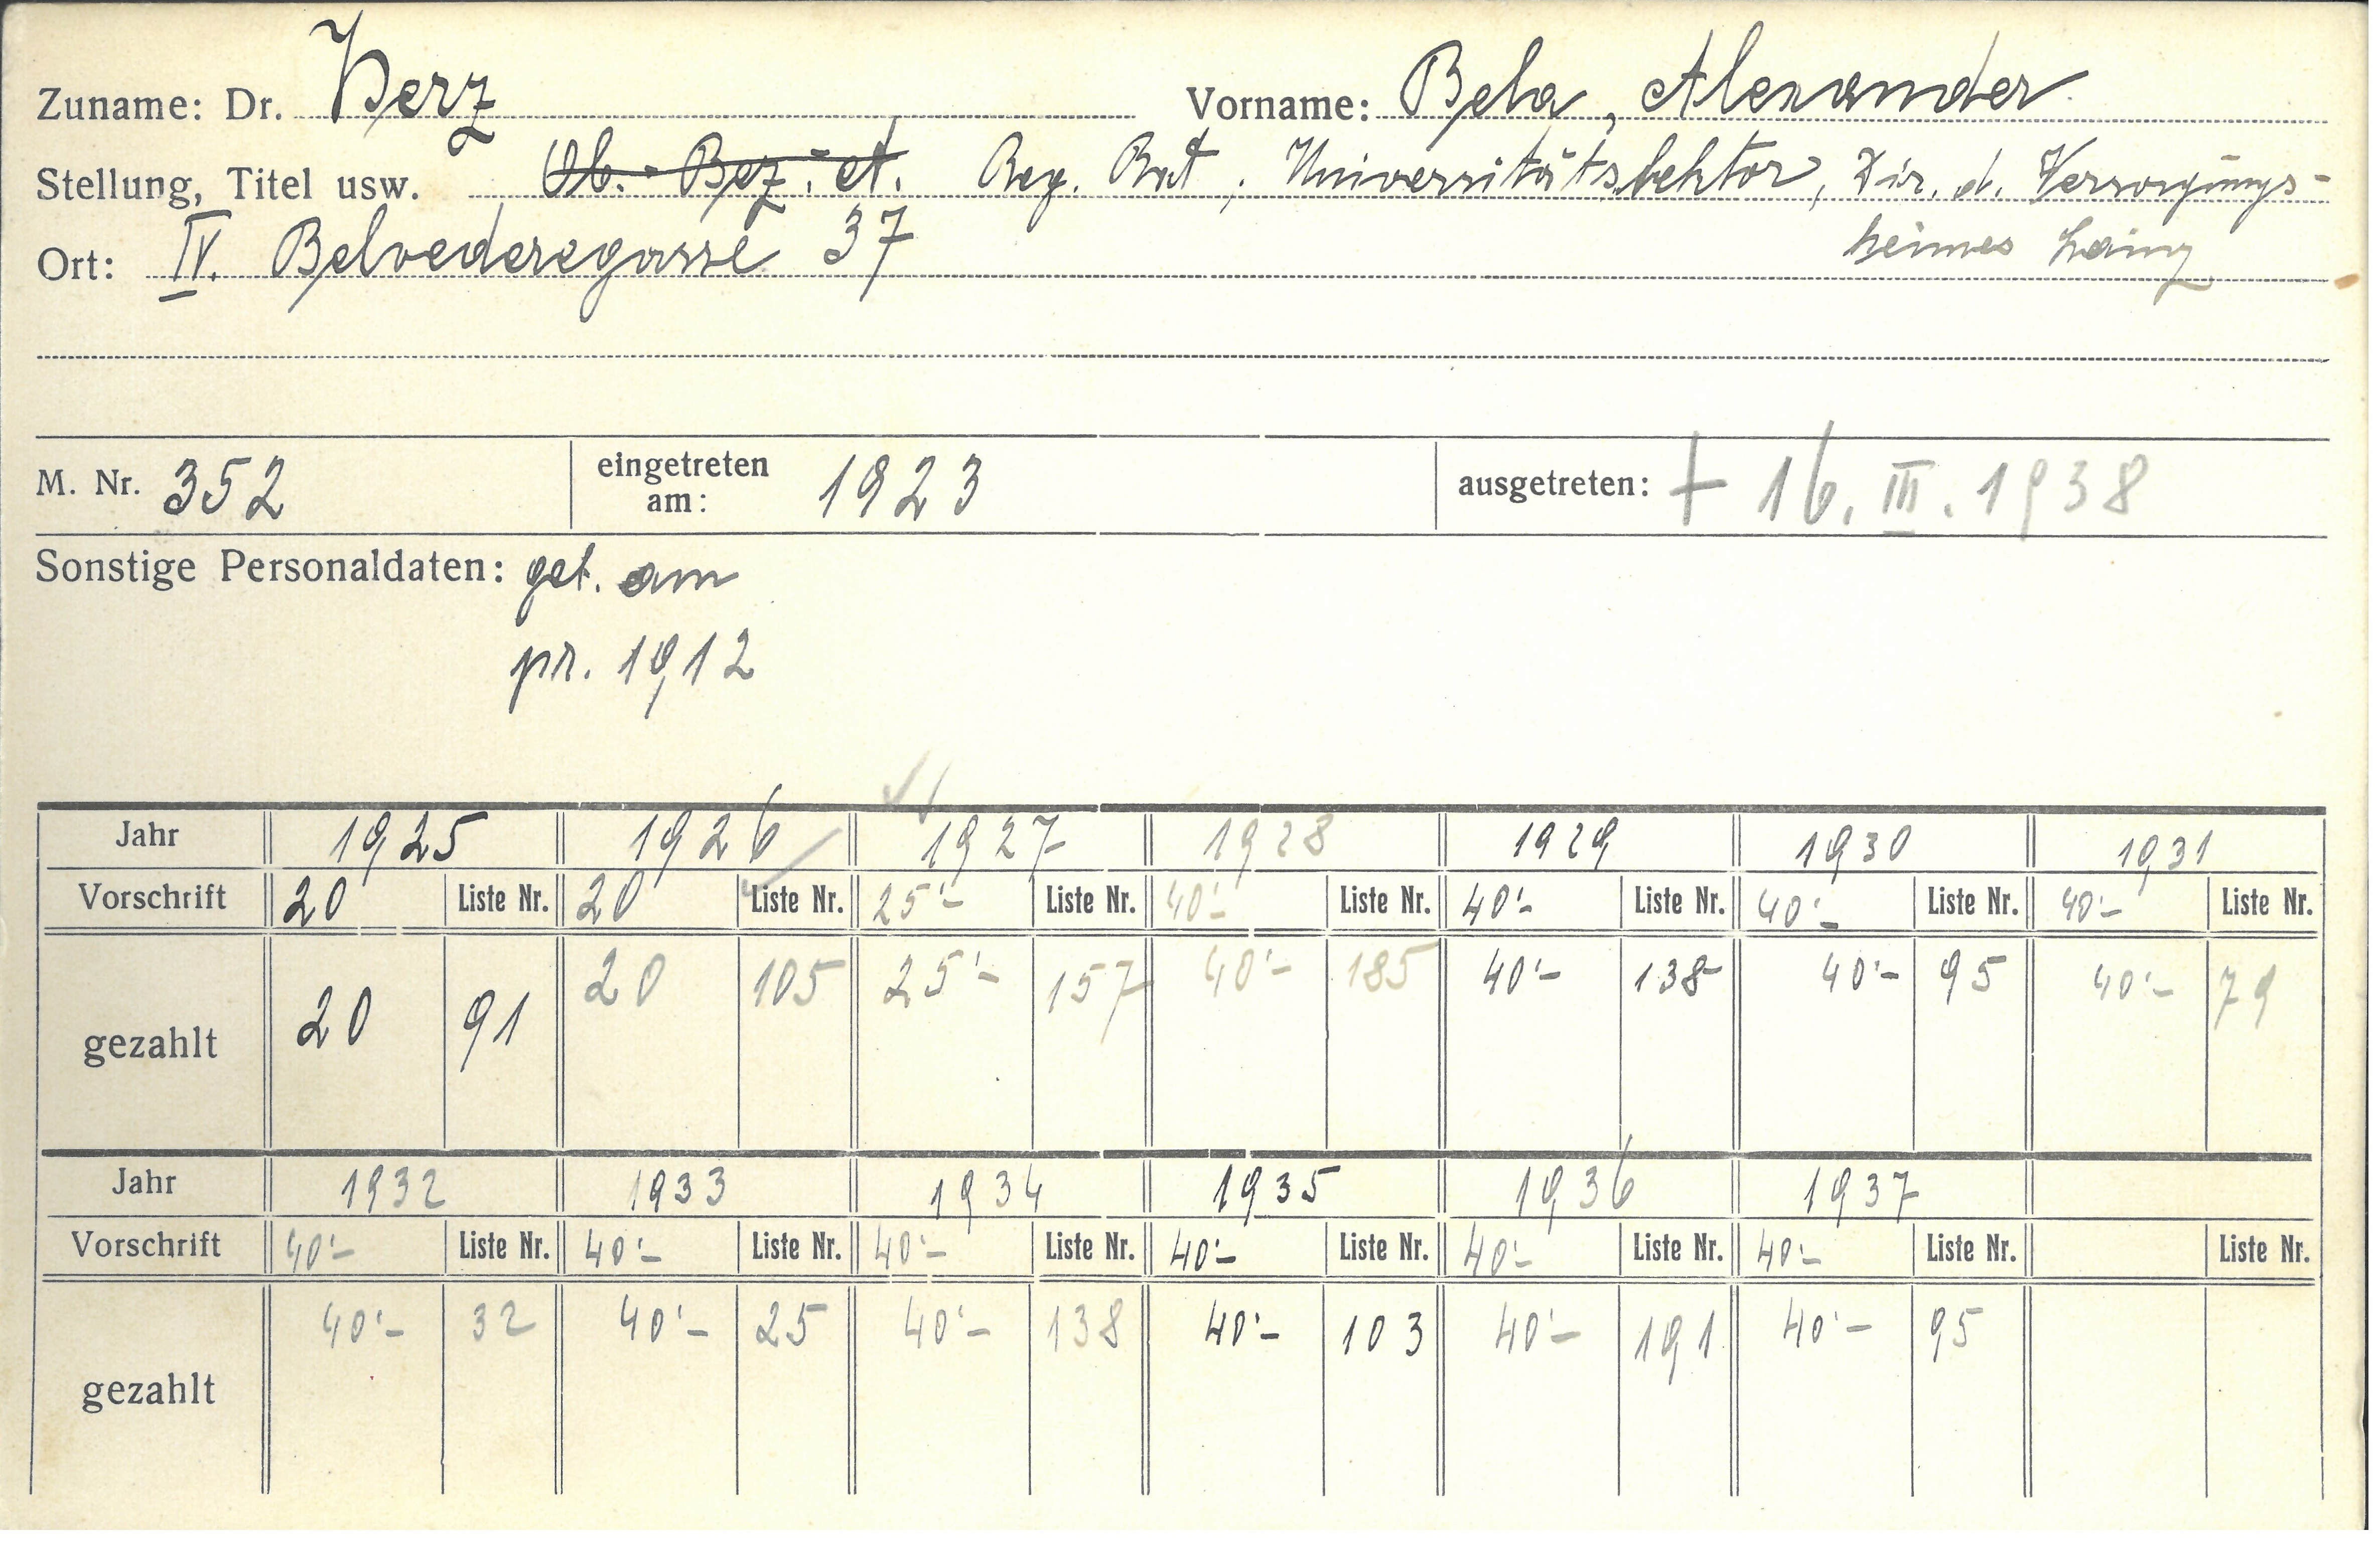 Zuname: Dr. Herz Vorname: Bela, Alexander
Stellung, Titel usw. Ob.-Bez.-A. Reg. Rat, Universitätslektor, Dir. d. Versorgungs-
heimes Lainz
Ort: IV. Belvederegasse 37
M. Nr. 352 eingetreten am: 1923 ausgetreten: † 16. III. 1938
Sonstige Personaldaten: geb. am
pr. 1912
Jahr 1925 1926 1927 1928 1929 1930 1931
Vorschrift 20 Liste Nr. 20 Liste Nr. 25'- Liste Nr. 40'- Liste Nr. 40'- Liste Nr. 40'- Liste Nr. 40'- Liste Nr.
gezahlt 20 91 20 105 25'- 157 40'- 185 40'- 138 40'- 95 40'- 79
Jahr 1932 1933 1934 1935 1936 1937
Vorschrift 40'- Liste Nr. 40'- Liste Nr. 40'- Liste Nr. 40'- Liste Nr. 40'- Liste Nr. 40'- Liste Nr. Liste Nr.
gezahlt 40'- 32 40'- 25 40'- 138 40'- 103 40'- 191 40'- 95